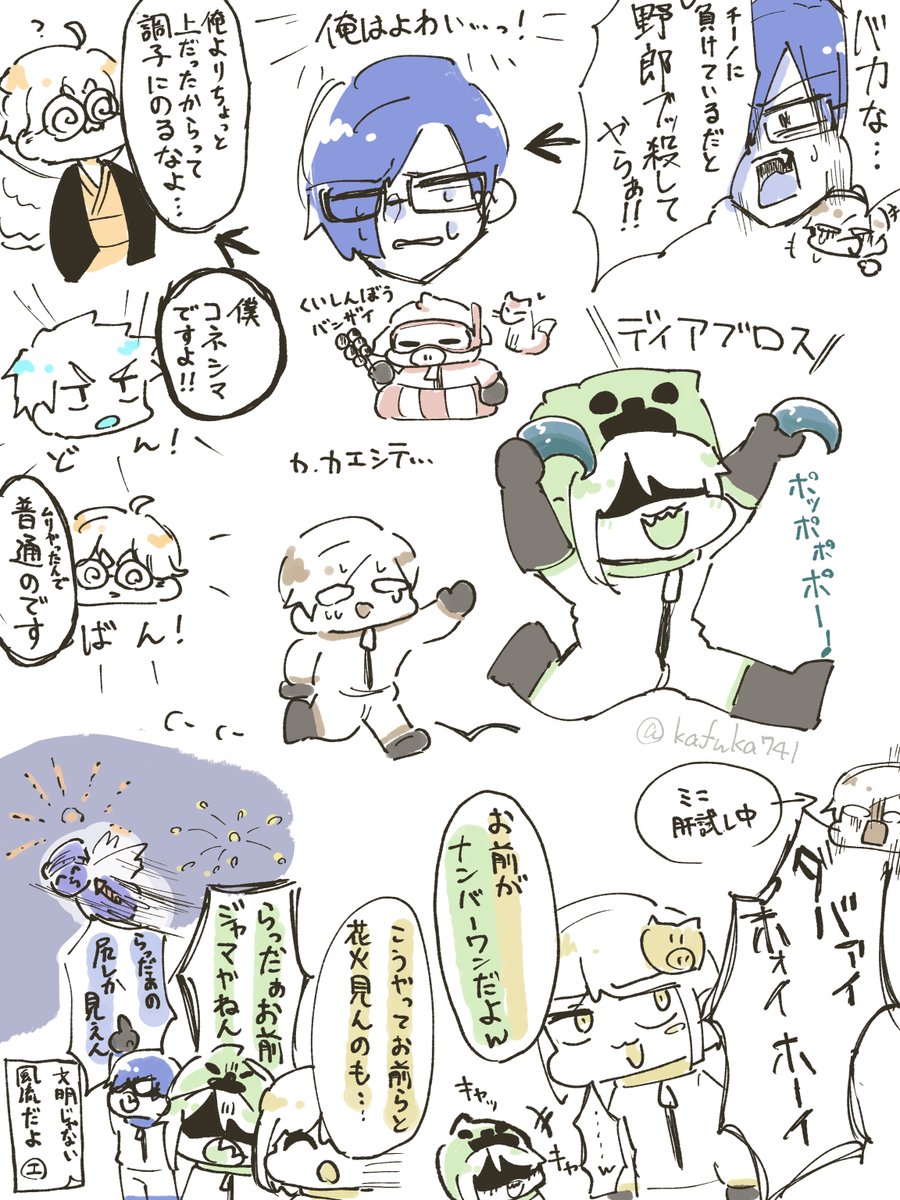 バカな…
チーノに
負けているだと
野郎ブッ殺して
やらぁ!!
俺はよわい…っ!
俺よりちょっと
上だったからって
調子にのるなよ…
?
僕
コネシマ
ですよ!!
どん!
ムリやったんで
普通のです
ばん!
くいしんぼう
バンザイ
ディアブロス
カ、カエシテ…
ポッポポポー!
@kafuka741
ミニ
肝試し中
バァイ
ホォイ
ホーイ
お前が
ナンバーワンだよw
……w
キャッ
キャッ
こうやってお前らと
花火見んのも…
らっだぁお前
ジャマやねん
らっだぁの
尻しか
見えん
文明じゃない
風流だよ
エ